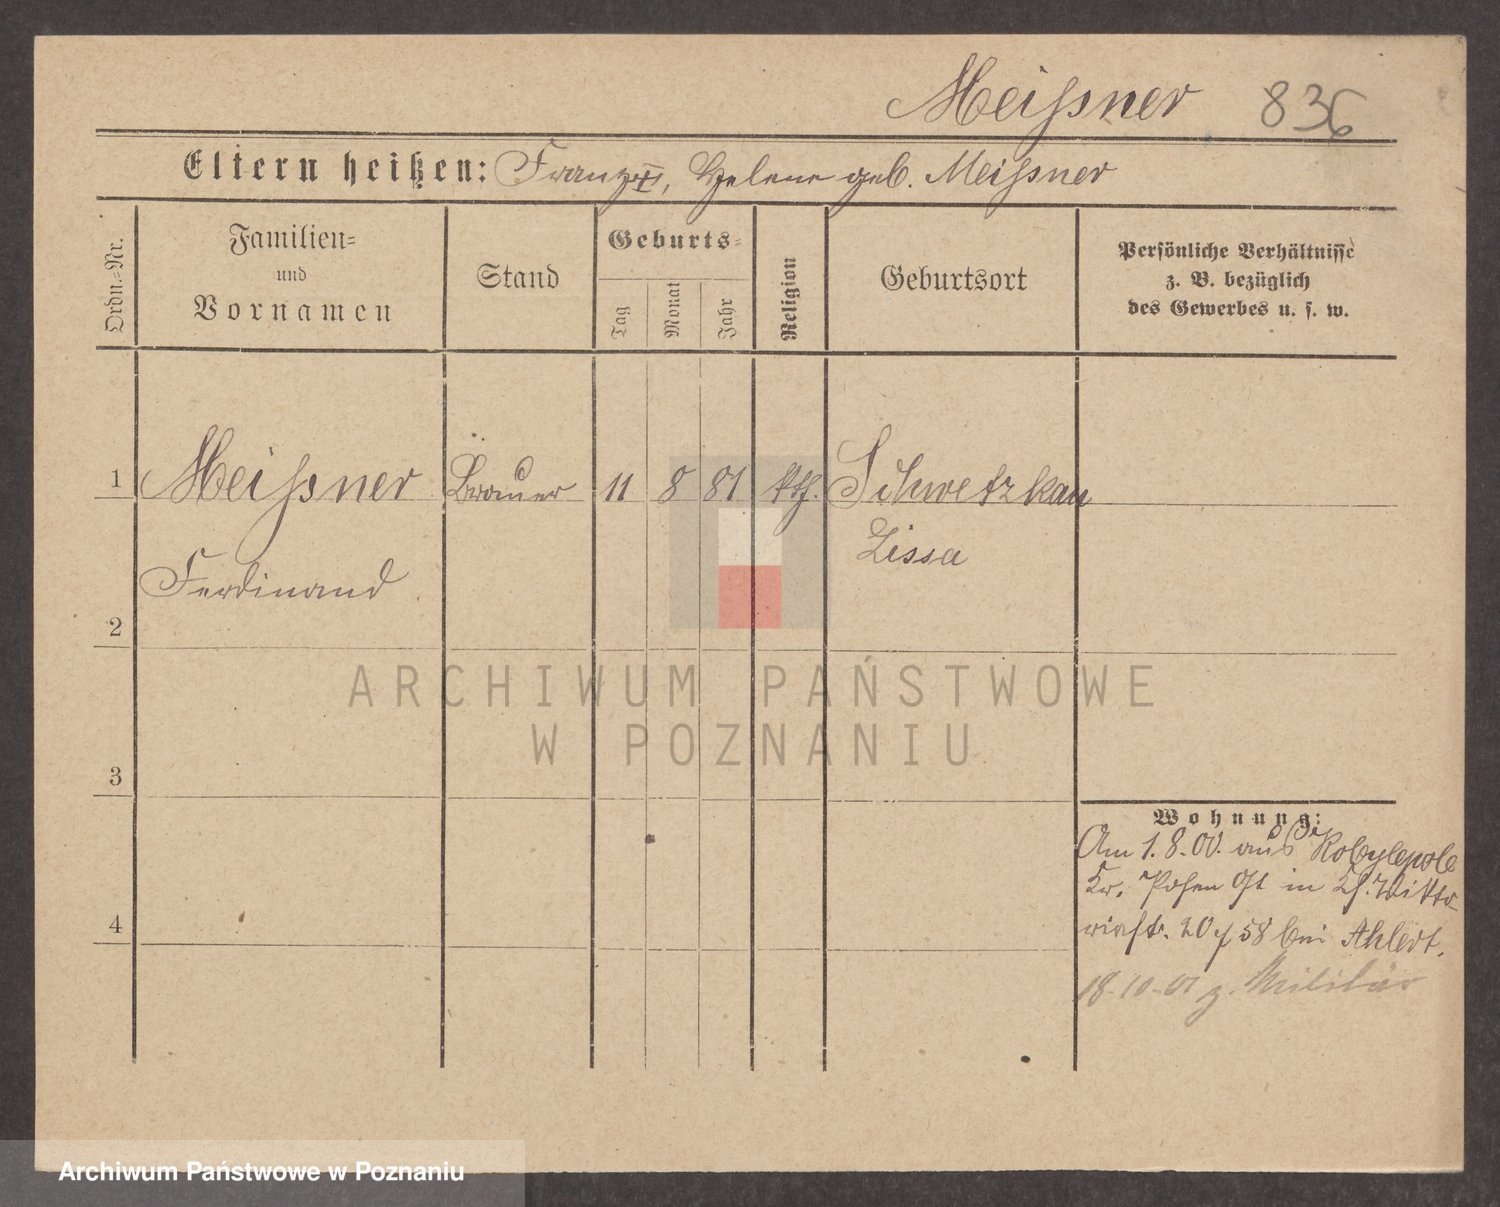 Meißner 836
Eltern heißen: Franz, Helene geb. Meißner
Ordn.=Nr.
Familien=
und
Vornamen
Stand
Geburts=
Tag
Monat
Jahr
Religion
Geburtsort
Persönliche Verhältnisse
z. B. bezüglich
des Gewerbes u. s. w.
1 Meißner Brauer 11 8 81 kth. Schwetzkau
Lissa
Ferdinand
2
ARCHIWUM PAŃSTWOWE
W POZNANIU
3
Wohnung:
Am 1. 8. 00. aus Kobylepole
Kr. Posen Ost in Wikto-
4
riastr. 20 58 bei Ahlert.
18-10-01 z. Militär
Archiwum Państwowe w Poznaniu